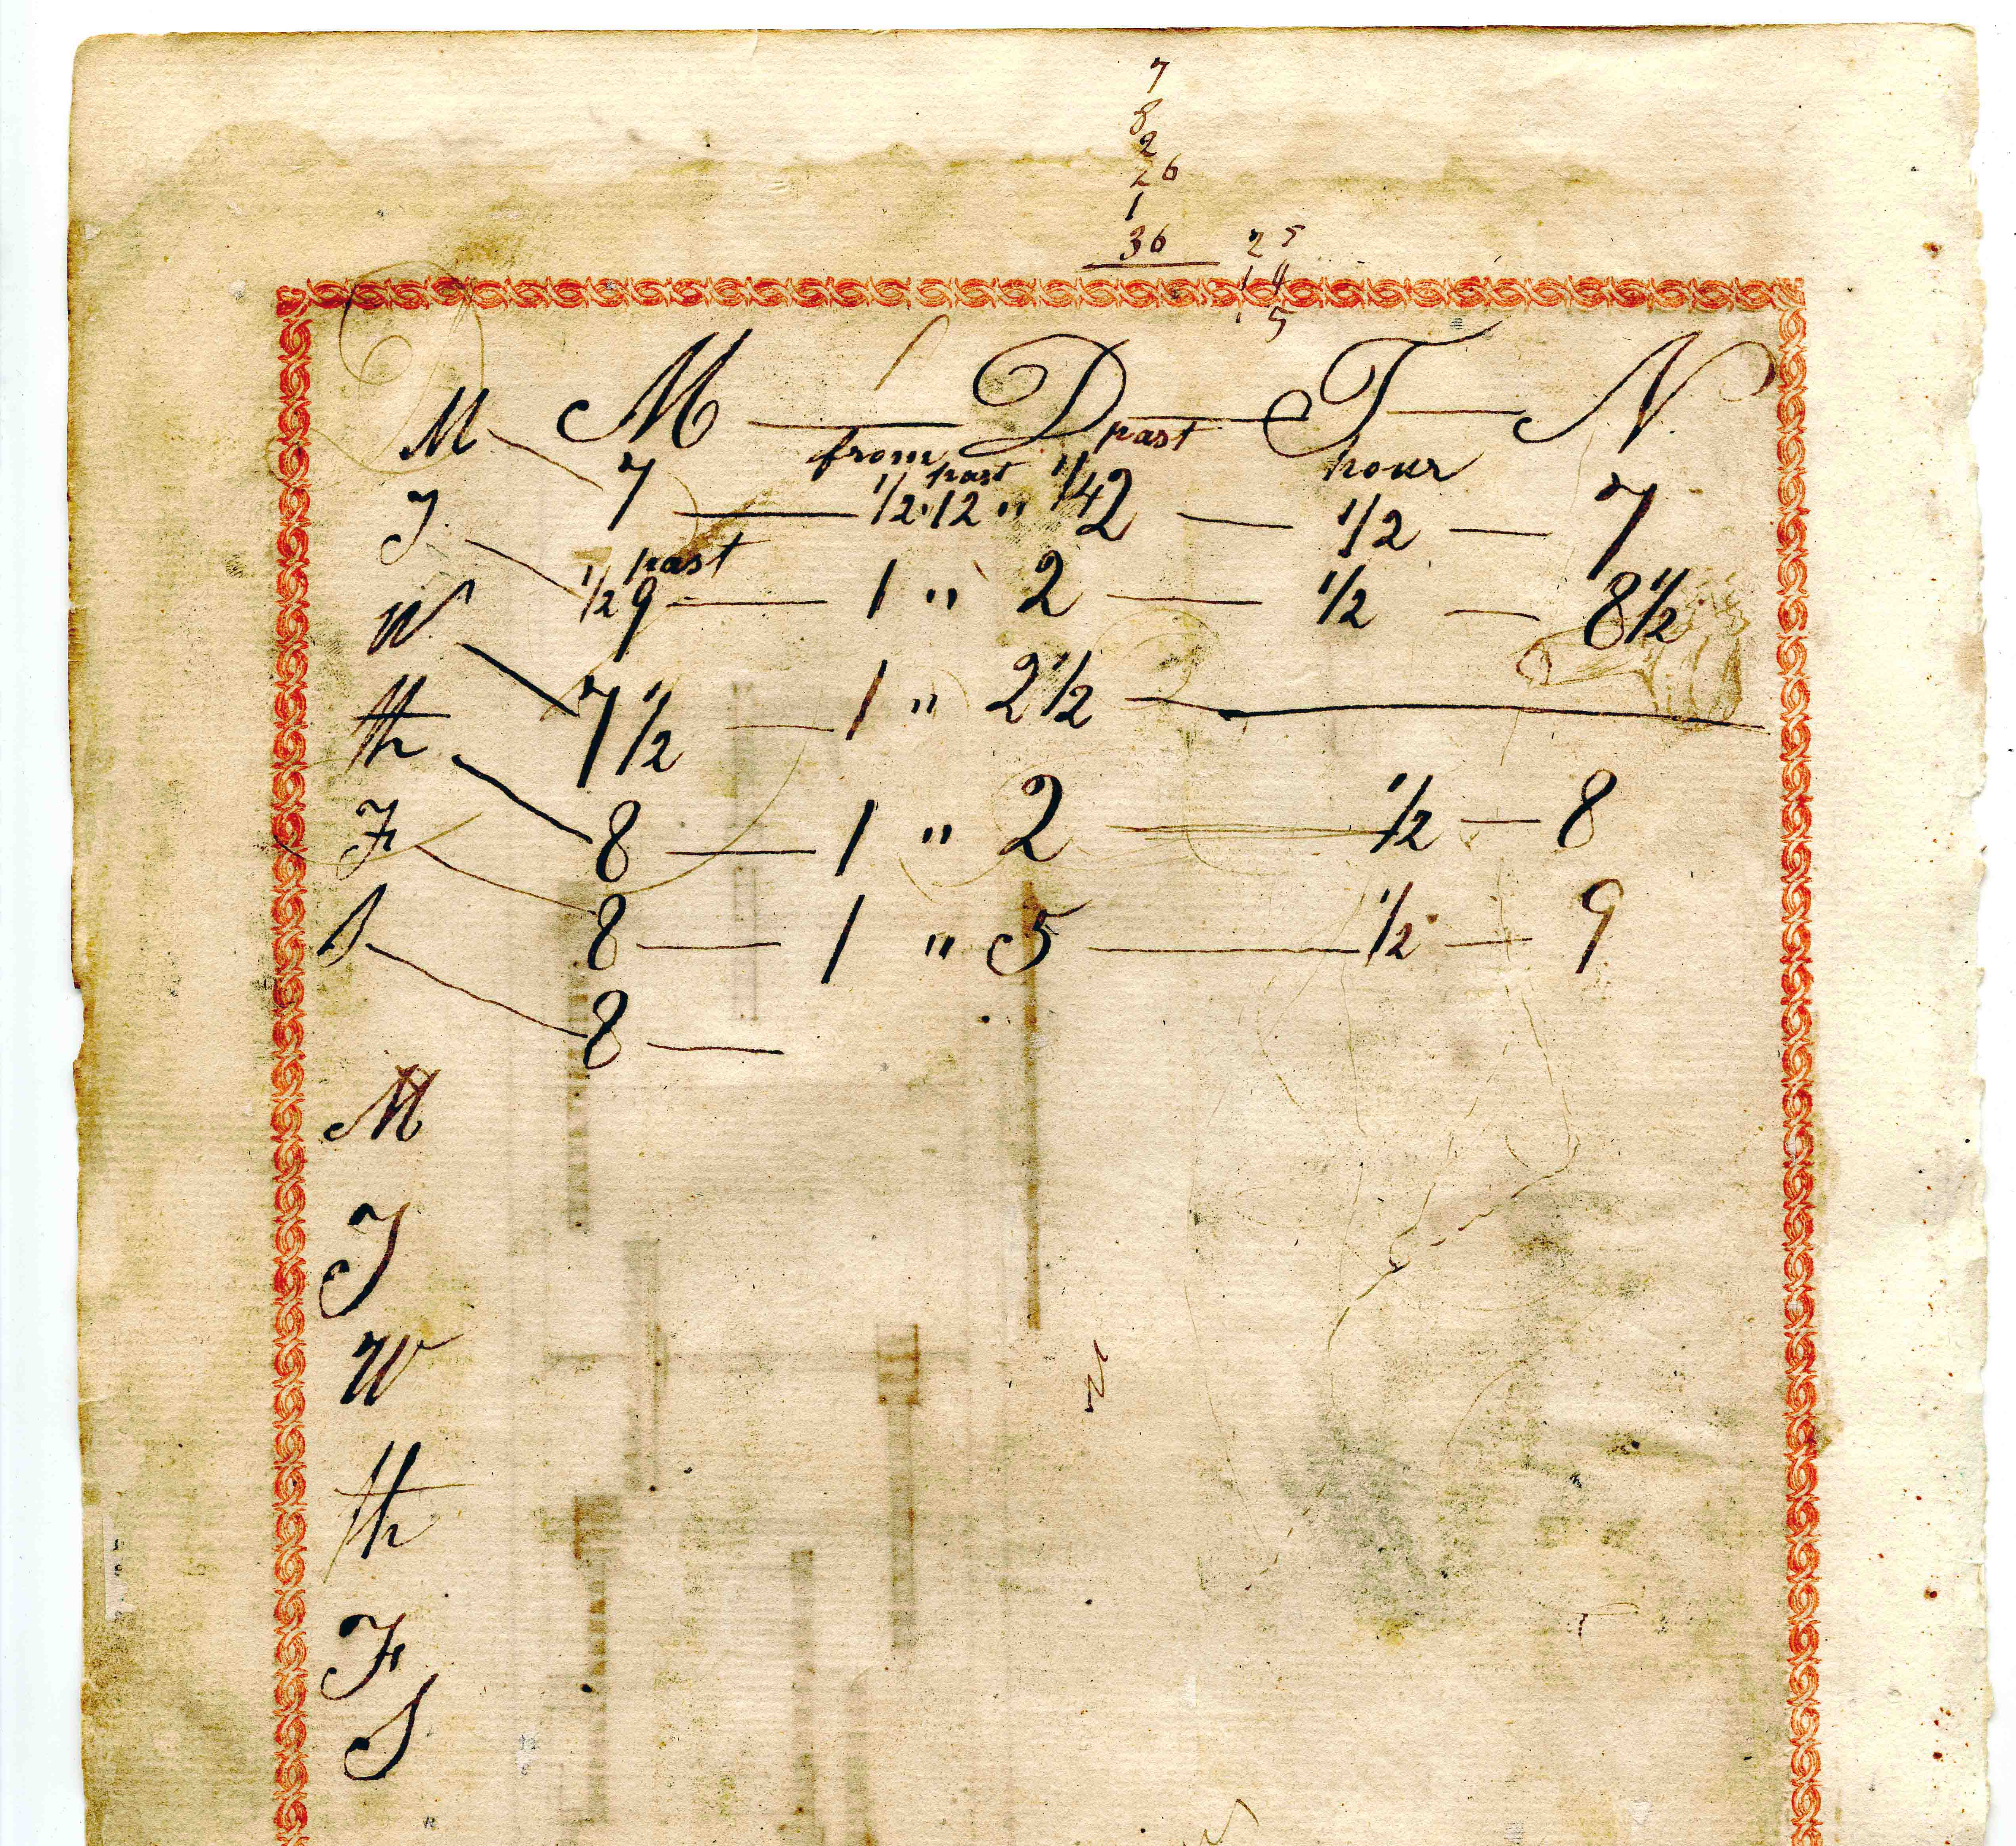 7
8
2
26
1
36
25
14
5
M — D — T — N
M 7 — from ½ past 12 " ¼ past 2 — ½ hour — 7
T ½ past 9 — 1 " 2 — ½ — 8½
W 7½ — 1 " 2½ —
th 8 — 1 " 2 — ½ — 8
F 8 — 1 " 5 — ½ — 9
S 8 —
M
T
W
th
F
S